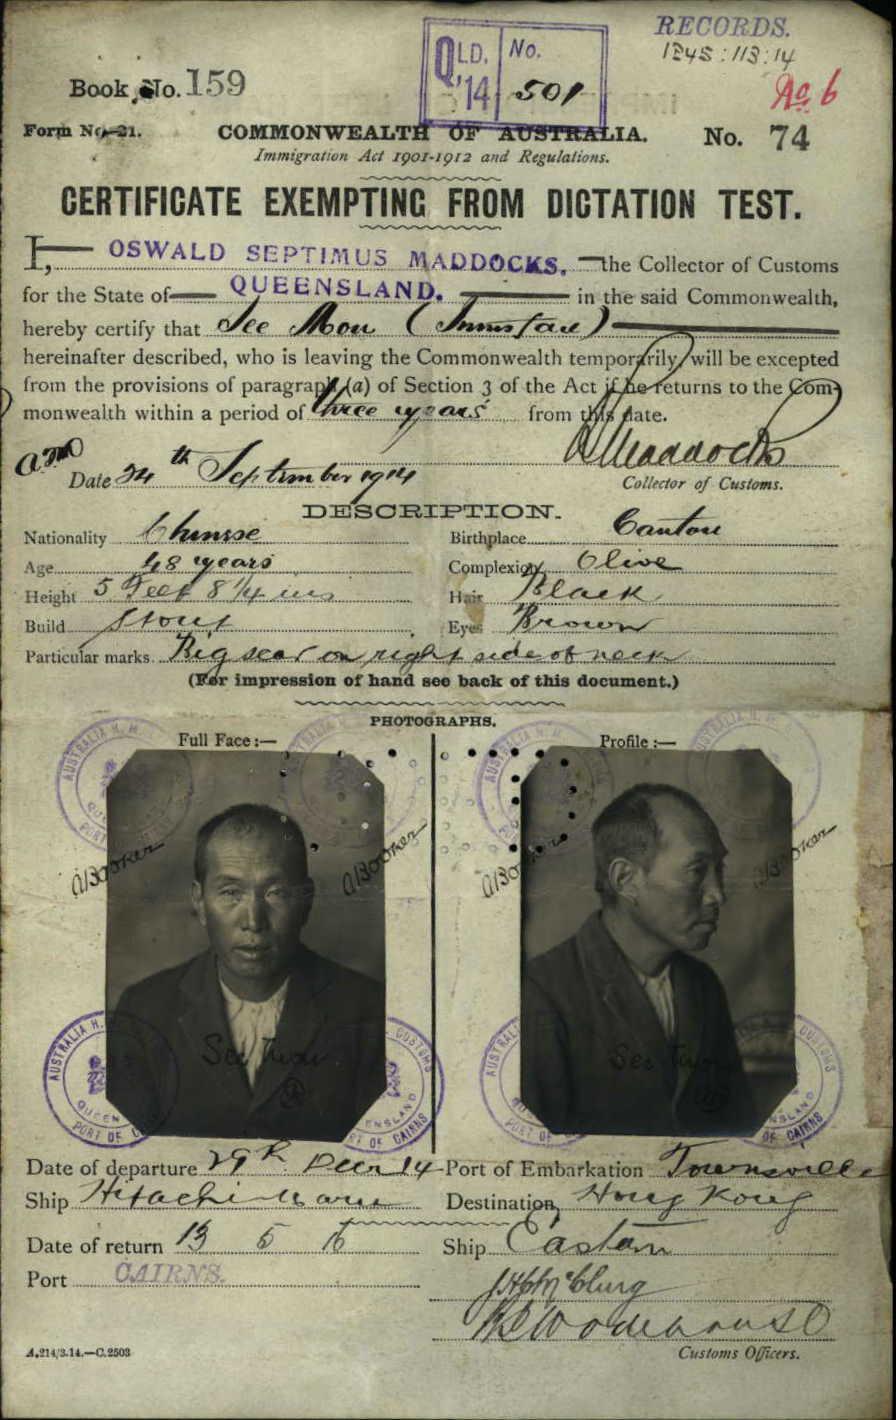 RECORDS.
1245:113:14
QLD. No.
'14 501
No 6
Book No. 159
Form No. 21.
COMMONWEALTH OF AUSTRALIA.
No. 74
Immigration Act 1901-1912 and Regulations.
CERTIFICATE EXEMPTING FROM DICTATION TEST.
I, OSWALD SEPTIMUS MADDOCKS, the Collector of Customs
for the State of QUEENSLAND. in the said Commonwealth,
hereby certify that See Mou (Innisfail)
hereinafter described, who is leaving the Commonwealth temporarily, will be excepted
from the provisions of paragraph (a) of Section 3 of the Act if he returns to the Com-
monwealth within a period of three years from this date.
Maddocks
Date 24th September 1914
Collector of Customs.
DESCRIPTION.
Nationality Chinese Birthplace Canton
Age 48 years Complexion Olive
Height 5 Feet 8 1/4 ins Hair Black
Build Stout Eyes Brown
Particular marks Big scar on right side of neck
(For impression of hand see back of this document.)
PHOTOGRAPHS.
Full Face:— Profile:—
AUSTRALIA H. M.
PORT
A Booker A Booker A Booker A Booker
See See
AUSTRALIA H. CUSTOMS
QUEENSLAND
PORT OF CAIRNS
Date of departure 29th Decr 14 Port of Embarkation Townsville
Ship Hitachi Maru Destination Hong Kong
Date of return 13 5 16 Ship Eastern
Port CAIRNS.
Woodehouse
A.214/3.14.—C.2503
Customs Officers.